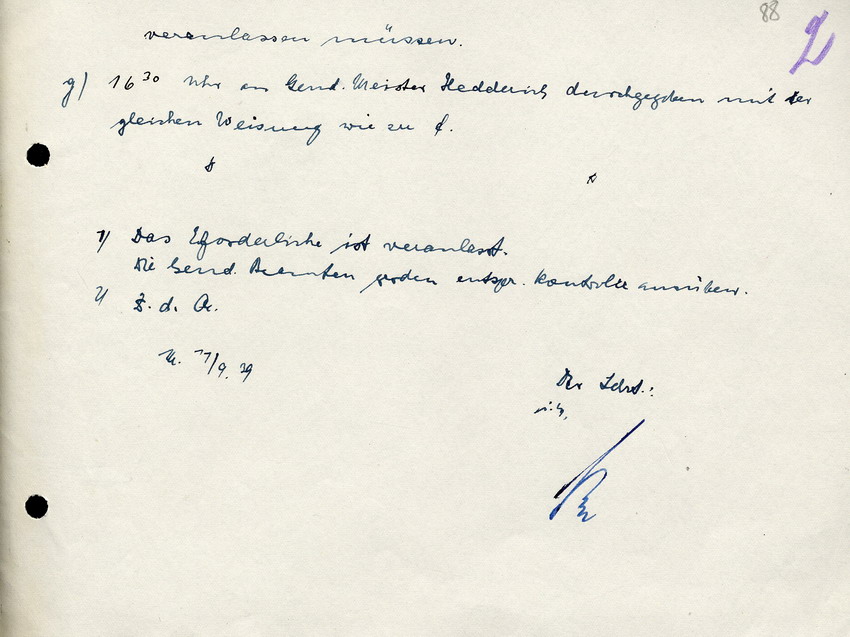 88
2
veranlassen müssen.
g) 16 30 Uhr an Gend. Meister Hedderich durchgegeben mit der
gleichen Weisung wie zu
1) Das Erforderliche ist veranlasst.
Die Gend. Beamten werden entspr. Kontrolle ausüben.
2) Z. d. A.
9. 39
Der Ldrt.: